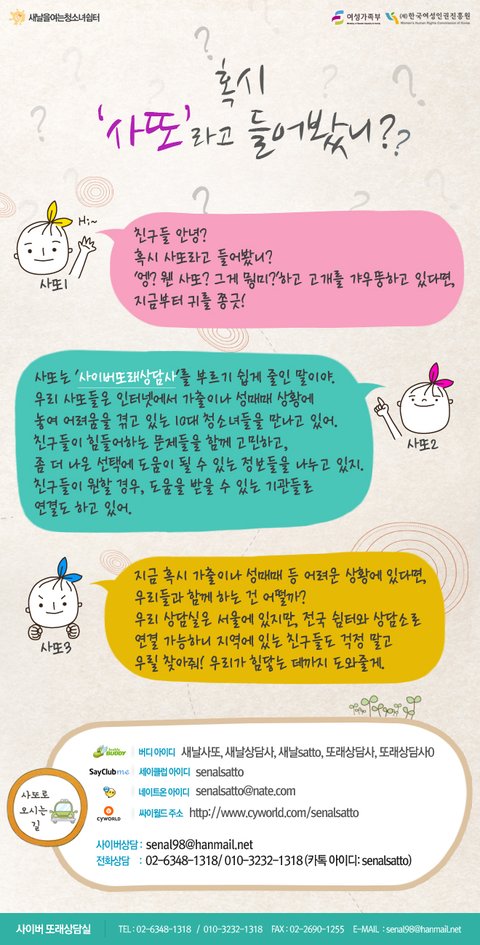 새날을여는청소년쉼터
여성가족부
Ministry of Gender Equality & Family
(재)한국여성인권진흥원
Women's Human Rights Commission of Korea
혹시
'사또'라고 들어봤니??
Hi~
사또1
친구들 안녕?
혹시 사또라고 들어봤니?
'엥? 웬 사또? 그게 뭥미?'하고 고개를 갸우뚱하고 있다면,
지금부터 귀를 쫑긋!
사또는 '사이버또래상담사'를 부르기 쉽게 줄인 말이야.
우리 사또들은 인터넷에서 가출이나 성매매 상황에
놓여 어려움을 겪고 있는 10대 청소년들을 만나고 있어.
친구들이 힘들어하는 문제들을 함께 고민하고,
좀 더 나은 선택에 도움이 될 수 있는 정보들을 나누고 있지.
친구들이 원할 경우, 도움을 받을 수 있는 기관들로
연결도 하고 있어.
사또2
지금 혹시 가출이나 성매매 등 어려운 상황에 있다면,
우리들과 함께 하는 건 어떨까?
우리 상담실은 서울에 있지만, 전국 쉼터와 상담소로
연결 가능하니 지역에 있는 친구들도 걱정 말고
우릴 찾아줘! 우리가 힘닿는 데까지 도와줄게.
사또3
사또로
오시는
길
BUDDY 버디 아이디 새날사또, 새날상담사, 새날satto, 또래상담사, 또래상담사0
SayClub me 세이클럽 아이디 senalsatto
네이트온 아이디 senalsatto@nate.com
CYWORLD 싸이월드 주소 http://www.cyworld.com/senalsatto
사이버상담 : senal98@hanmail.net
전화상담 : 02-6348-1318/ 010-3232-1318 (카톡 아이디: senalsatto)
사이버 또래상담실 TEL : 02-6348-1318 / 010-3232-1318 FAX : 02-2690-1255 E-MAIL : senal98@hanmail.net